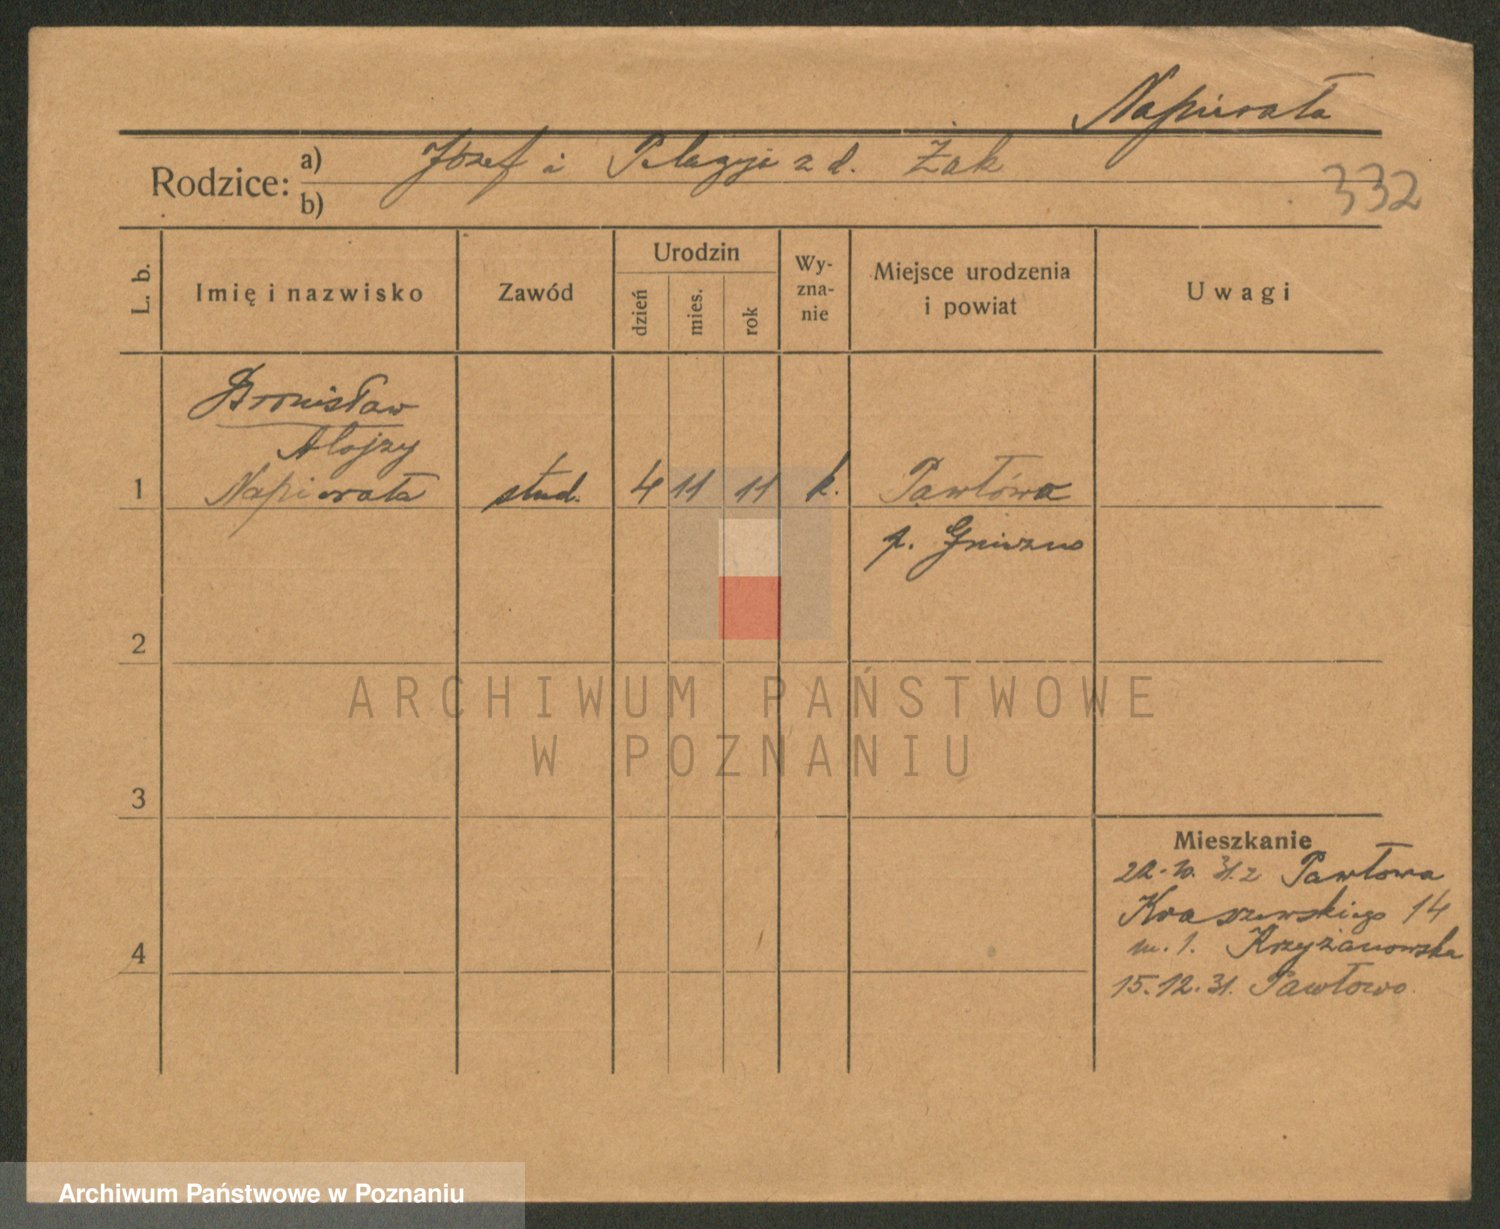 Napierała
Rodzice: a) Józef i Pelagja z d. Żak
b)
332
L. b.
Imię i nazwisko
Zawód
Urodzin
dzień
mies.
rok
Wy-
zna-
nie
Miejsce urodzenia
i powiat
Uwagi
Bronisław
Alojzy
1 Napierała stud. 4 11 11 k. Pawłówo
p. Gniezno
2
ARCHIWUM PAŃSTWOWE
W POZNANIU
3
Mieszkanie
22.10.31. z Pawłowa
Kraszewskiego 14
m. 1. Krzyżanowska
4
15.12.31. Pawłowo.
Archiwum Państwowe w Poznaniu